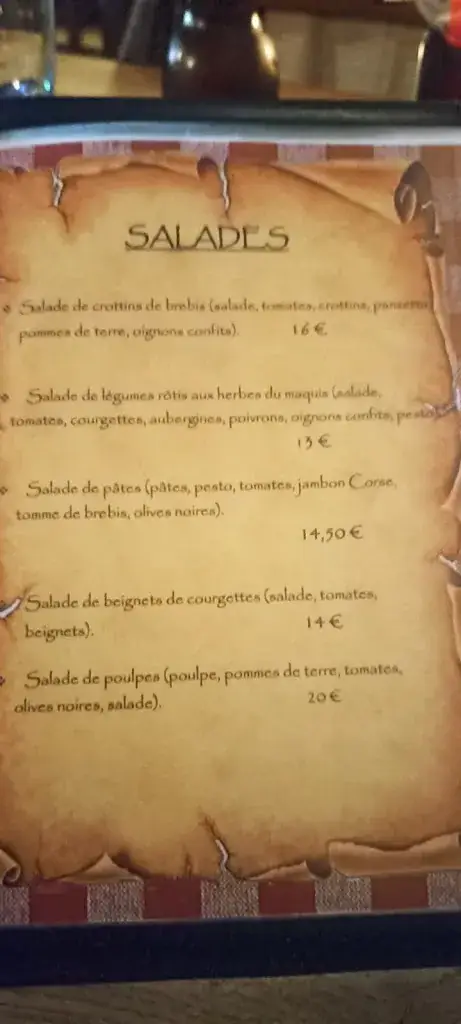 SALADES
Salade de crottins de brebis (salade, tomates, crottins, pancetta,
pommes de terre, oignons confits). 16 €
Salade de légumes rôtis aux herbes du maquis (salade,
tomates, courgettes, aubergines, poivrons, oignons confits, pesto).
13 €
Salade de pâtes (pâtes, pesto, tomates, jambon Corse,
tomme de brebis, olives noires).
14,50 €
Salade de beignets de courgettes (salade, tomates,
beignets). 14 €
Salade de poulpes (poulpe, pommes de terre, tomates,
olives noires, salade). 20 €